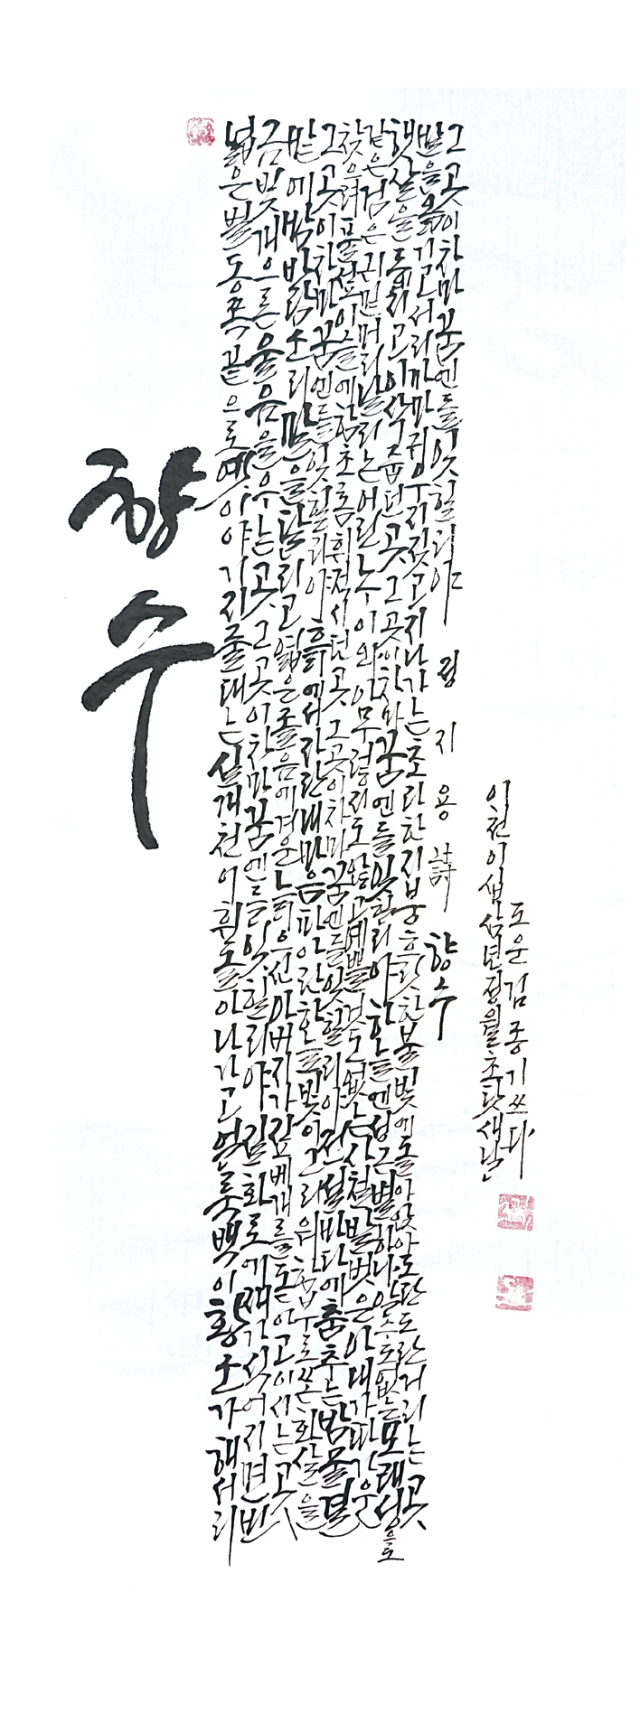 향수
넓은 벌 동쪽 끝으로 옛이야기 지줄대는 실개천이 휘돌아 나가고 얼룩백이 황소가 해서리
금빛 게으른 울음을 우는 곳 그곳이 차마 꿈엔들 잊힐리야 질화로에 재가 식어지면 빈
밭에 밤바람 소리 말을 달리고 엷은 졸음에 겨운 늙으신 아버지가 짚베개를 돋아 고이시는 곳
그곳이 차마 꿈엔들 잊힐리야 흙에서 자란 내 마음 파아란 하늘빛이 그리워 함부로 쏜 화살을
찾으려 풀섶 이슬에 함초롬 휘적시던 곳 그곳이 차마 꿈엔들 잊힐리야 전설바다에 춤추는 밤물결
같은 검은 귀밑머리 날리는 어린 누이와 아무렇지도 않고 예쁠 것도 없는 사철 발벗은 아내가 따가운
햇살을 등에 지고 이삭 줍던 곳 그곳이 차마 꿈엔들 잊힐리야 하늘엔 성근 별 알 수도 없는 모래성으로
발을 옮기고 서리 까마귀 우지짖고 지나가는 초라한 지붕 흐릿한 불빛에 돌아앉아 도란도란거리는 곳
그곳이 차마 꿈엔들 잊힐리야 정지용 詩 향수
이천이십삼년 정월 초닷새날
도운 김종기 쓰다.